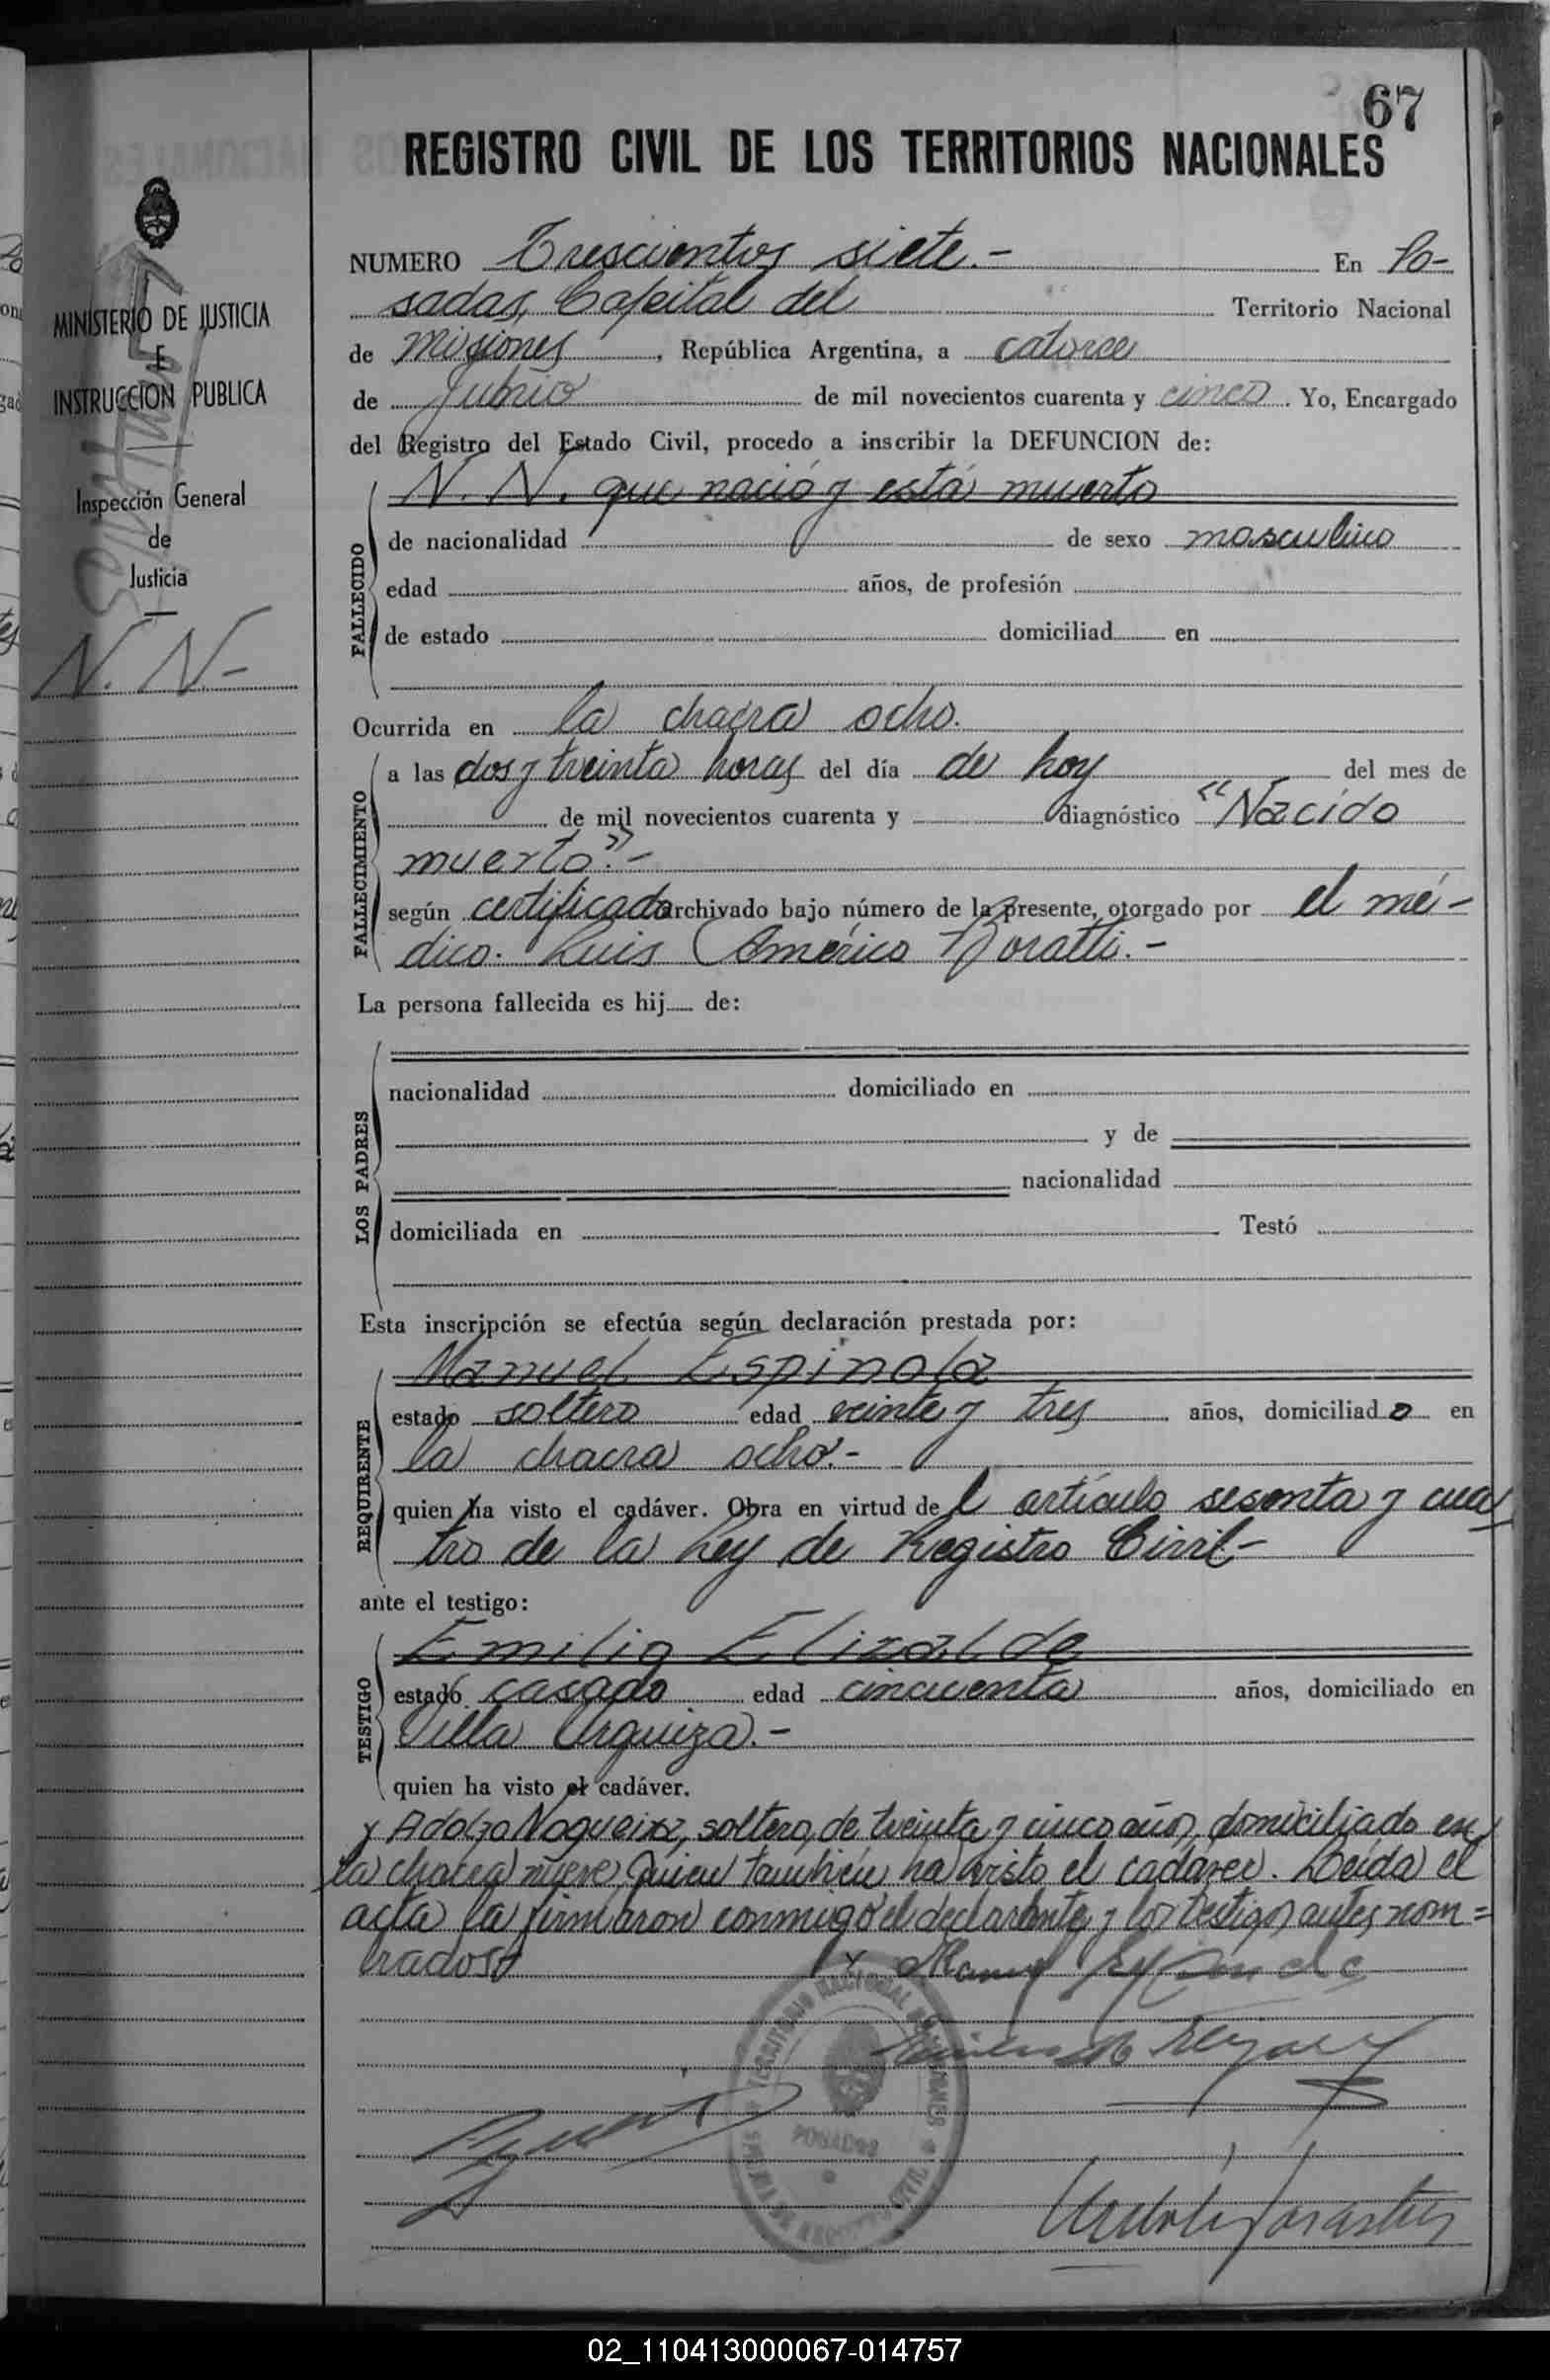 67
REGISTRO CIVIL DE LOS TERRITORIOS NACIONALES
MINISTERIO DE JUSTICIA
E
INSTRUCCION PUBLICA
Inspección General
de
Justicia
N. N-
NUMERO Trescientos siete.- En Po-
sadas, Capital del Territorio Nacional
de Misiones, República Argentina, a catorce
de Junio de mil novecientos cuarenta y cinco. Yo, Encargado
del Registro del Estado Civil, procedo a inscribir la DEFUNCION de:
FALLECIDO
N. N. que nació y está muerto
de nacionalidad de sexo masculino
edad años, de profesión
de estado domiciliad en
Ocurrida en la chacra ocho.
FALLECIMIENTO
a las dos y treinta horas del día de hoy del mes de
de mil novecientos cuarenta y diagnóstico "Nacido
muerto".-
según certificado archivado bajo número de la presente, otorgado por el mé-
dico. Luis Américo
La persona fallecida es hij de:
LOS PADRES
nacionalidad domiciliado en
y de
nacionalidad
domiciliada en Testó
Esta inscripción se efectúa según declaración prestada por:
REQUIRENTE
Manuel Espinola
estado soltero edad veinte y tres años, domiciliado en
la chacra ocho.-
quien ha visto el cadáver. Obra en virtud del artículo sesenta y cua
tro de la Ley de Registro Civil-
ante el testigo:
TESTIGO
Emilio Elizalde
estado casado edad cincuenta años, domiciliado en
Villa Urquiza.-
quien ha visto el cadáver.
y Adolfo Nogueira, soltero, de treinta y cinco años, domiciliado en
la chacra nueve, quien también ha visto el cadáver. Leída el
acta la firmaron conmigo el declarante y los testigos antes nom=
brados.
Manuel Espinola
TERRITORIO NACIONAL DE MISIONES
POSADAS
02_110413000067-014757